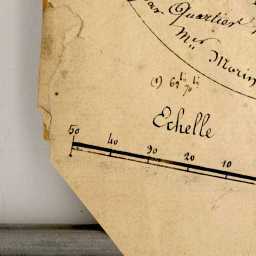 par Quartier
Mrs Morin
(1) 6 lv lv
70
Echelle
50 40 30 20 10